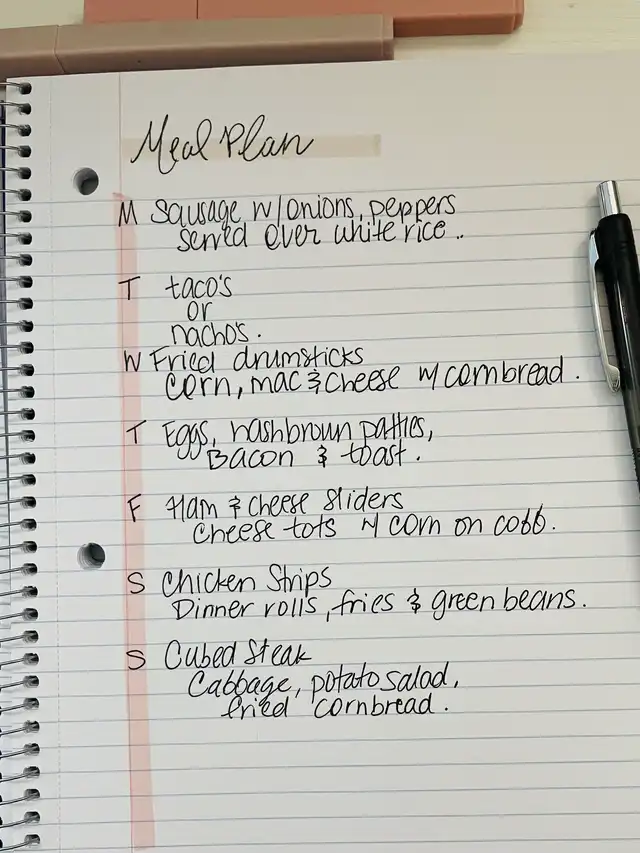 Meal Plan
M Sausage w/onions, peppers
served over white rice ..
T taco's
or
nacho's.
W Fried drumsticks
corn, mac & cheese w/ cornbread.
T Eggs, hashbroun patties,
Bacon & toast.
F Ham & cheese sliders
cheese tots w/ corn on cobb.
S Chicken Strips
Dinner rolls, fries & green beans.
S Cubed Steak
Cabbage, potato salad,
fried cornbread.